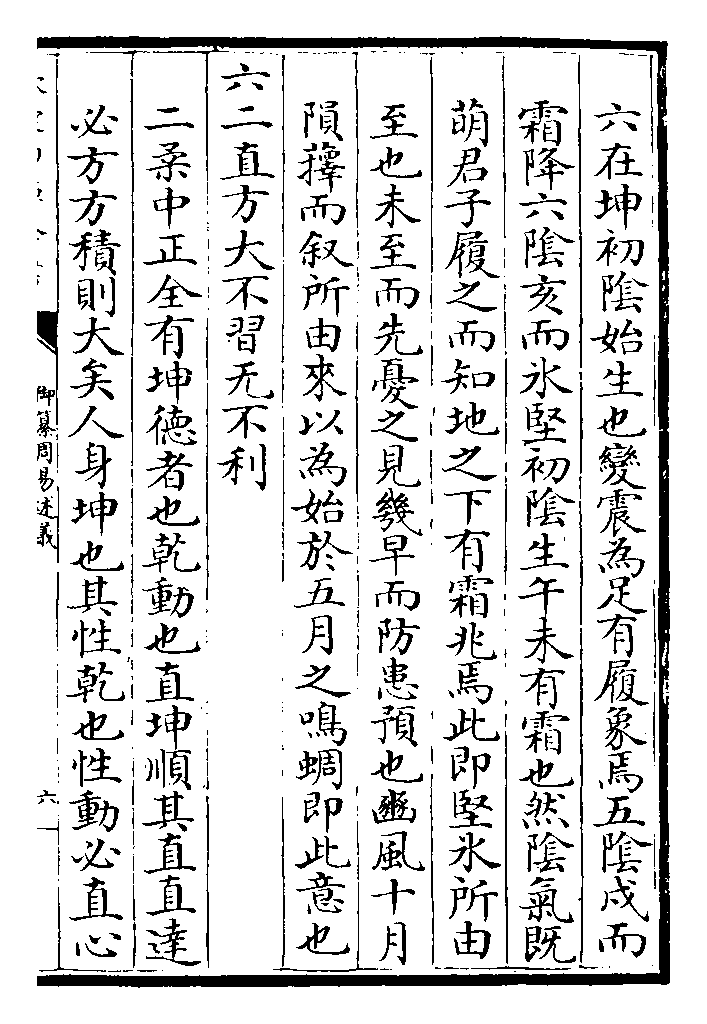 六在坤初陰始生也變震為足有履象焉五陰戌而
霜降六陰亥而氷堅初陰生午未有霜也然陰氣既
萌君子履之而知地之下有霜兆焉此即堅氷所由
至也未至而先憂之見幾早而防患預也豳風十月
隕蘀而叙所由來以為始於五月之鳴蜩即此意也
六二直方大不習无不利
二柔中正全有坤德者也乾動也直坤順其直直達
必方方積則大矣人身坤也其性乾也性動必直心
御纂周易述義
六